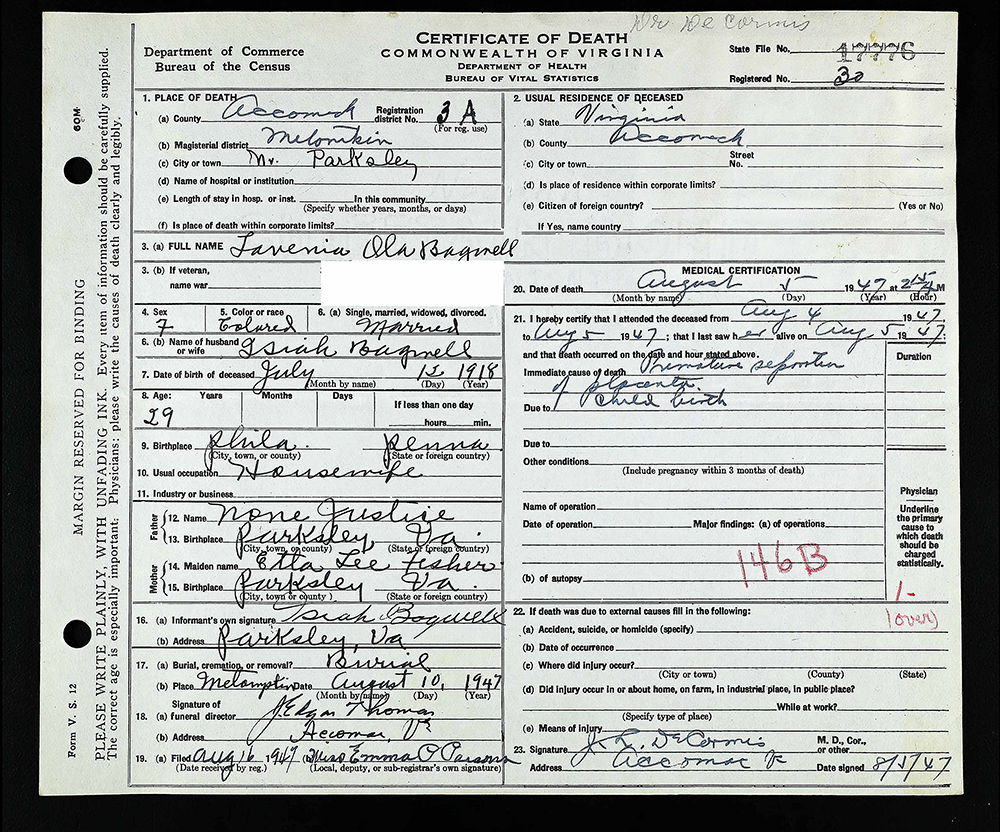 Dr. De Cormis
CERTIFICATE OF DEATH
COMMONWEALTH OF VIRGINIA
DEPARTMENT OF HEALTH
BUREAU OF VITAL STATISTICS
Department of Commerce
Bureau of the Census
State File No. 17776
Registered No. 30
60M
MARGIN RESERVED FOR BINDING
PLEASE WRITE PLAINLY, WITH UNFADING INK. Every item of information should be carefully supplied.
The correct age is especially important: Physicians: please write the causes of death clearly and legibly.
Form V. S. 12
1. PLACE OF DEATH
(a) County Accomack Registration district No. 3 A
(For reg. use)
(b) Magisterial district Metomkin
(c) City or town Nr. Parksley
(d) Name of hospital or institution
(e) Length of stay in hosp. or inst. In this community
(Specify whether years, months, or days)
(f) Is place of death within corporate limits?
2. USUAL RESIDENCE OF DECEASED
(a) State Virginia
(b) County Accomack
(c) City or town Street No.
(d) Is place of residence within corporate limits?
(e) Citizen of foreign country? (Yes or No)
If Yes, name country
3. (a) FULL NAME Lavenia Ola Bagwell
3. (b) If veteran,
name war
4. Sex 5. Color or race 6. (a) Single, married, widowed, divorced.
F Colored Married
6. (b) Name of husband or wife Isiah Bagwell
7. Date of birth of deceased July 12 1918
(Month by name) (Day) (Year)
8. Age: Years Months Days If less than one day
29 hours min.
9. Birthplace Phila. Penna
(City, town, or county) (State or foreign country)
10. Usual occupation Housewife
11. Industry or business
Father
12. Name None Justice
13. Birthplace Parksley Va.
(City, town, or county) (State or foreign country)
Mother
14. Maiden name Etta Lee Fisher
15. Birthplace Parksley Va.
(City, town, or county) (State or foreign country)
16. (a) Informant's own signature Isiah Bagwell
(b) Address Parksley, Va
17. (a) Burial, cremation, or removal? Burial
(b) Place Metomptin Date August 10, 1947
(Month by name) (Day) (Year)
18. Signature of
(a) funeral director J. Edgar Thomas
(b) Address Accomac, Va
19. (a) Filed Aug 16 1947 (b) Miss Emma P Parsons
(Date received by reg.) (Local, deputy, or sub-registrar's own signature)
MEDICAL CERTIFICATION
20. Date of death August 5 1947 at 2 15 M
(Month by name) (Day) (Year) (Hour)
21. I hereby certify that I attended the deceased from Aug 4 1947
to Aug 5 1947; that I last saw her alive on Aug 5 1947;
and that death occurred on the date and hour stated above. Duration
Immediate cause of death Premature separation
of placenta
Due to Child birth
Due to
Other conditions
(Include pregnancy within 3 months of death)
Name of operation
Date of operation Major findings: (a) of operations
146B
(b) of autopsy
Physician
Underline the primary cause to which death should be charged statistically.
1-
(over)
22. If death was due to external causes fill in the following:
(a) Accident, suicide, or homicide (specify)
(b) Date of occurrence
(c) Where did injury occur?
(City or town) (County) (State)
(d) Did injury occur in or about home, on farm, in industrial place, in public place?
While at work?
(Specify type of place)
(e) Means of injury
23. Signature J. L. DeCormis M. D., Cor., or other
Address Accomac Va Date signed 8/5/47